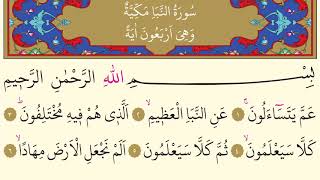 سُورَةُ النَّبَأِ مَكِّيَّةٌ
وَهِيَ اَرْبَعُونَ اٰيَةً
بِسْمِ اللّٰهِ الرَّحْمٰنِ الرَّحِيمِ
عَمَّ يَتَسَٓاءَلُونَۚ ﴿١﴾ عَنِ النَّبَأِ الْعَظِيمِۙ ﴿٢﴾ اَلَّذ۪ي هُمْ ف۪يهِ مُخْتَلِفُونَۜ ﴿٣﴾
كَلَّا سَيَعْلَمُونَۙ ﴿٤﴾ ثُمَّ كَلَّا سَيَعْلَمُونَ ﴿٥﴾ اَلَمْ نَجْعَلِ الْاَرْضَ مِهَاداًۙ ﴿٦﴾